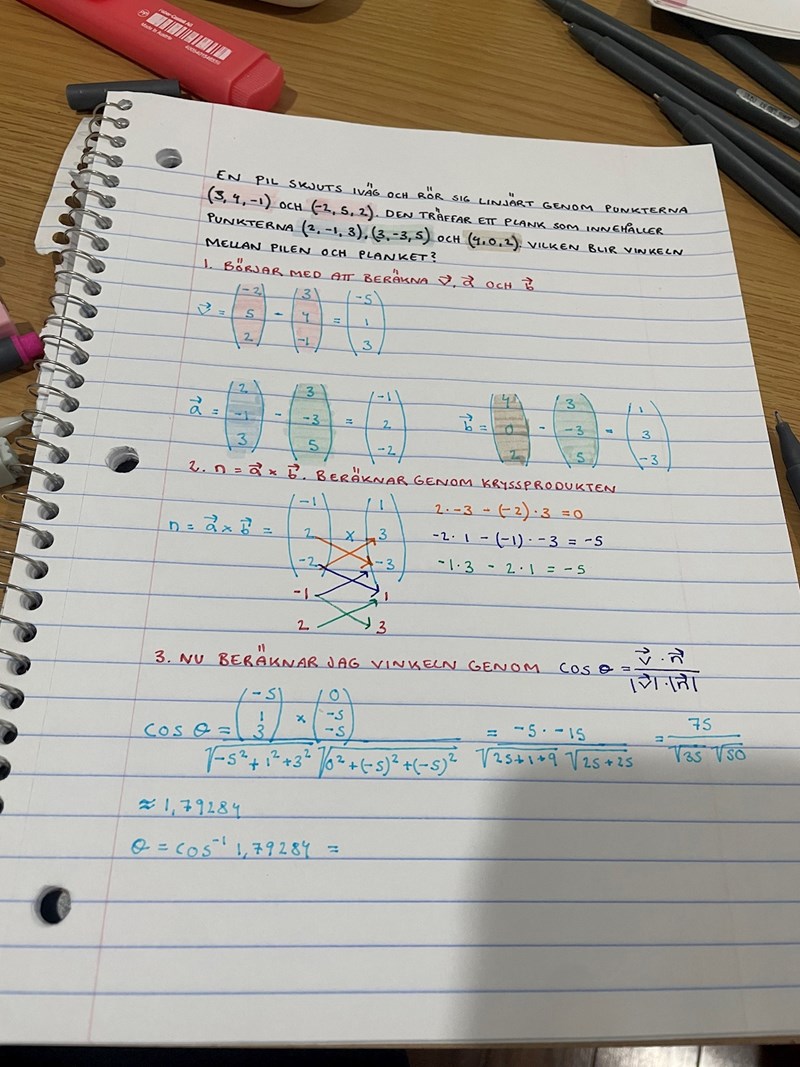 Faber-Castell AG
Made in Austria
4005401548515
EN PIL SKJUTS IVÄG OCH RÖR SIG LINJÄRT GENOM PUNKTERNA
(3, 4, -1) OCH (-2, 5, 2). DEN TRÄFFAR ETT PLANK SOM INNEHÅLLER
PUNKTERNA (2, -1, 3), (3, -3, 5) OCH (4, 0, 2). VILKEN BLIR VINKELN
MELLAN PILEN OCH PLANKET?
1. BÖRJAR MED ATT BERÄKNA v⃗, a⃗ OCH b⃗
v⃗ = (-2 5 2) - (3 4 -1) = (-5 1 3)
a⃗ = (2 -1 3) - (3 -3 5) = (-1 2 -2) b⃗ = (4 0 2) - (3 -3 5) = (1 3 -3)
2. n = a⃗ × b⃗. BERÄKNAR GENOM KRYSSPRODUKTEN
n = a⃗ × b⃗ = (-1 2 -2) × (1 3 -3)
-1 1
2 3
2·-3 - (-2)·3 = 0
-2·1 - (-1)·-3 = -5
-1·3 - 2·1 = -5
3. NU BERÄKNAR JAG VINKELN GENOM COS θ = v⃗·n⃗ / |v⃗|·|n⃗|
COS θ = (-5 1 3) × (0 -5 -5) / √-5²+1²+3² √0²+(-5)²+(-5)² = -5·-15 / √25+1+9 √25+25 = 75 / √35 √50
≈ 1,79284
θ = COS⁻¹ 1,79284 =